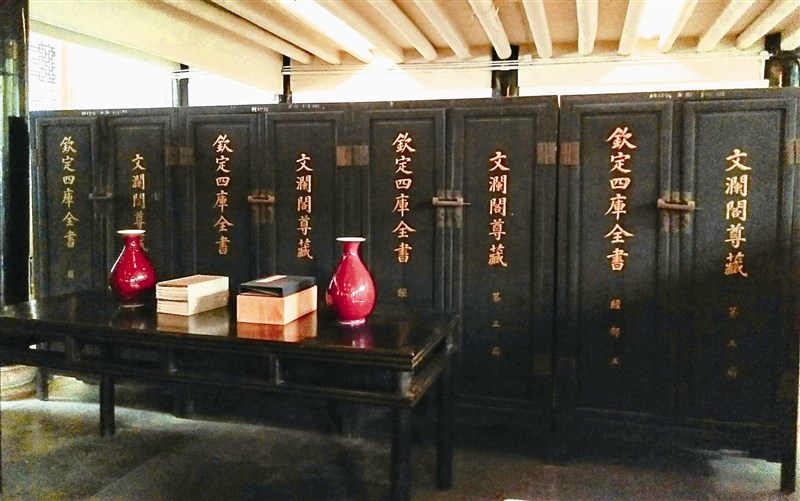 欽定四庫全書
文瀾閣尊藏
欽定四庫全書
文瀾閣尊藏
欽定四庫全書 經
文瀾閣尊藏 第三
欽定四庫全書 經部五
文瀾閣尊藏 第五